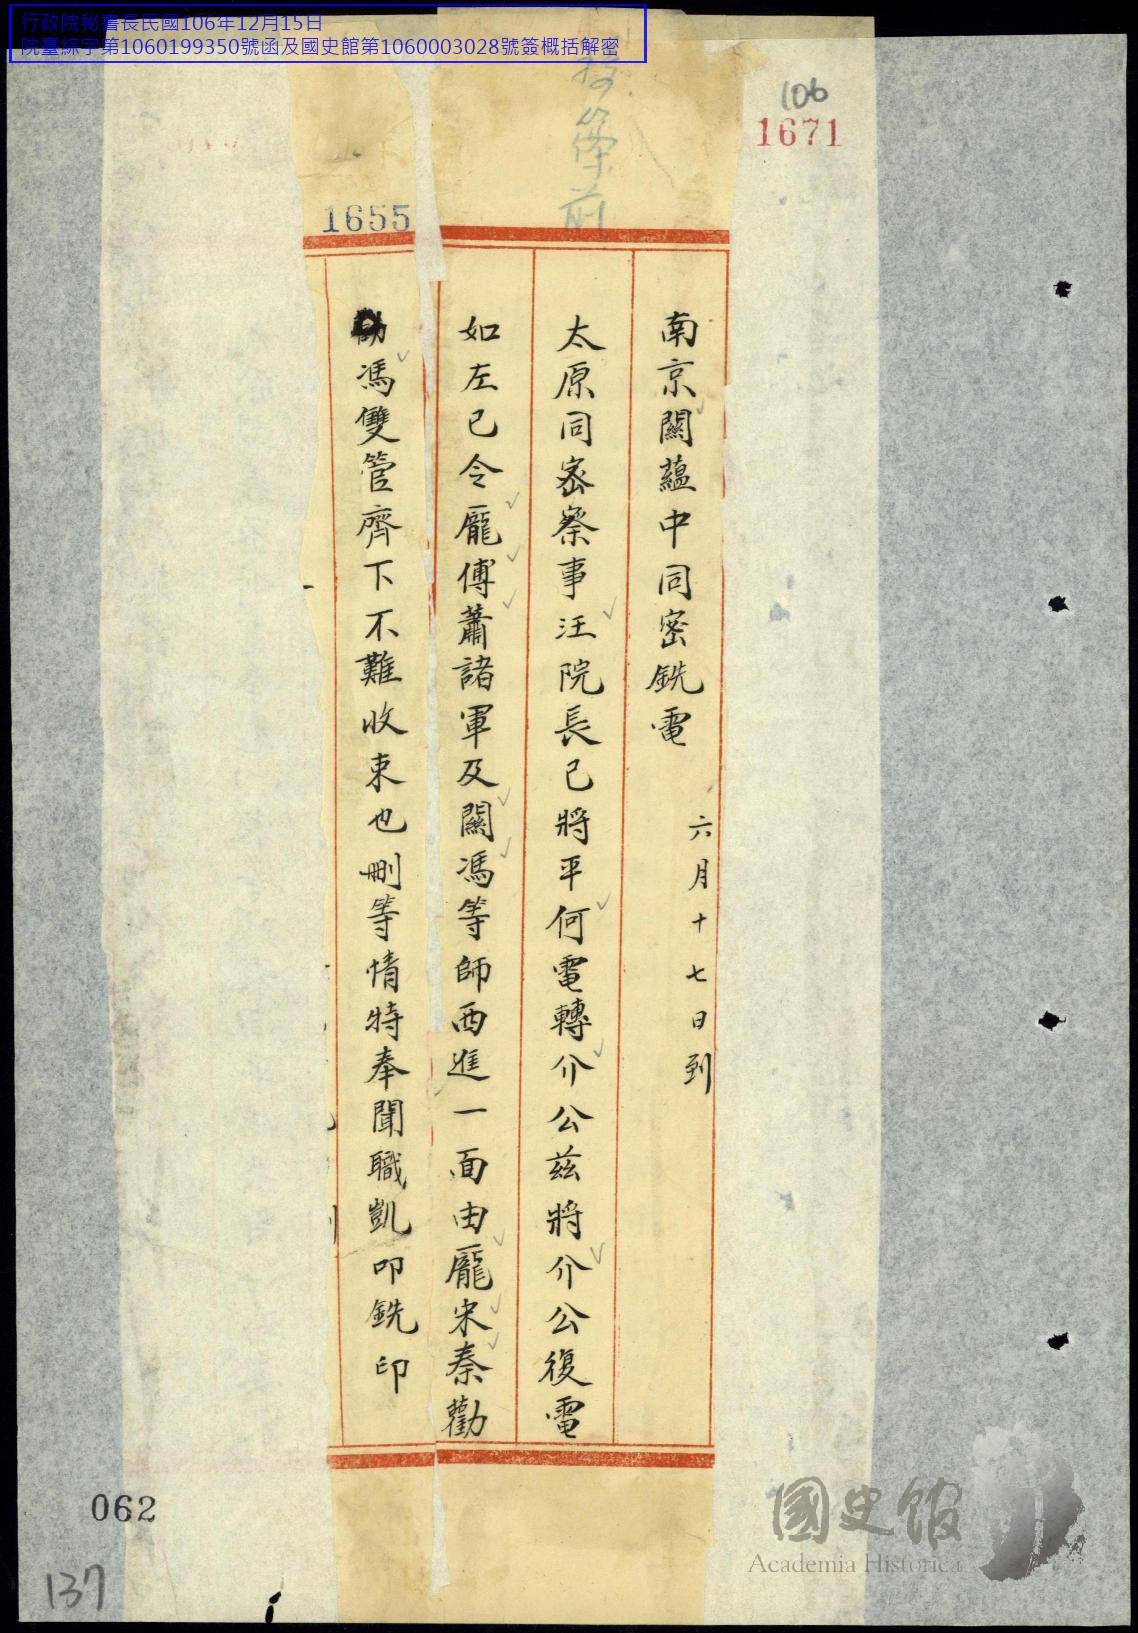 行政院秘書長民國106年12月15日
院臺綜字第1060199350號函及國史館第1060003028號簽概括解密
106
1671
1655
南京關蘊中同密銑電 六月十七日到
太原同密察事汪院長已將平何電轉介公茲將介公復電
如左已令龐傅蕭諸軍及關馮等師西進一面由龐宋秦勸
馮雙管齊下不難收束也刪等情特奉聞職凱叩銑印
062
137
國史館
Academia Historica